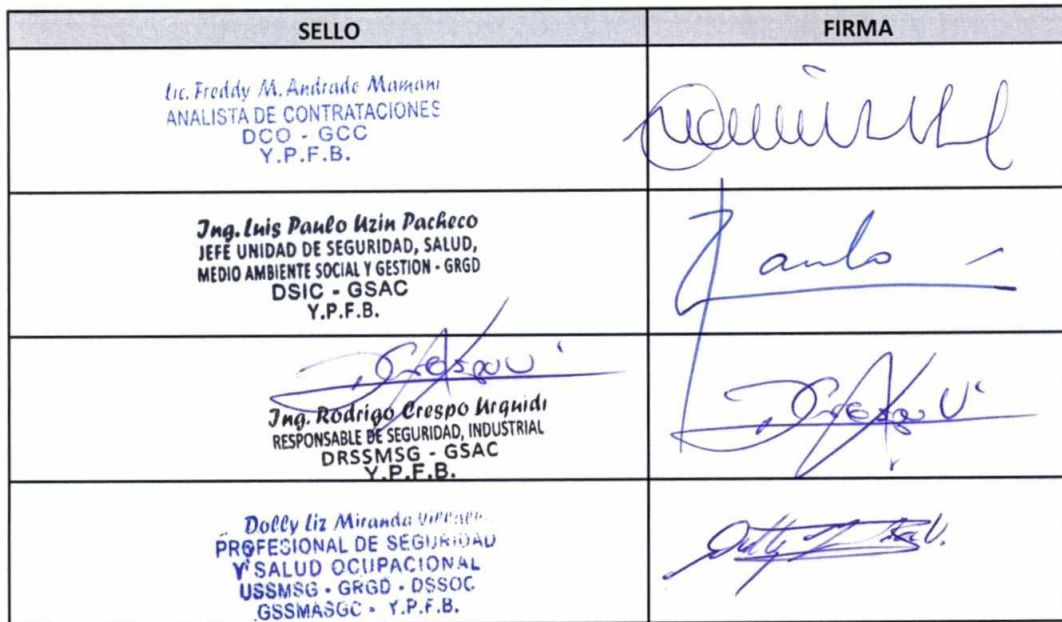 SELLO
FIRMA
Lic. Freddy M. Andrade Mamani
ANALISTA DE CONTRATACIONES
DCO - GCC
Y.P.F.B.
Ing. Luis Paulo Uzin Pacheco
JEFE UNIDAD DE SEGURIDAD, SALUD,
MEDIO AMBIENTE SOCIAL Y GESTION - GRGD
DSIC - GSAC
Y.P.F.B.
Paulo
DCrespo U
Ing. Rodrigo Crespo Urquidi
RESPONSABLE DE SEGURIDAD, INDUSTRIAL
DRSSMSG - GSAC
Y.P.F.B.
DCrespo U
Dolly Liz Miranda
PROFESIONAL DE SEGURIDAD
Y SALUD OCUPACIONAL
USSMSG - GRGD - DSSOC
GSSMASGC - Y.P.F.B.